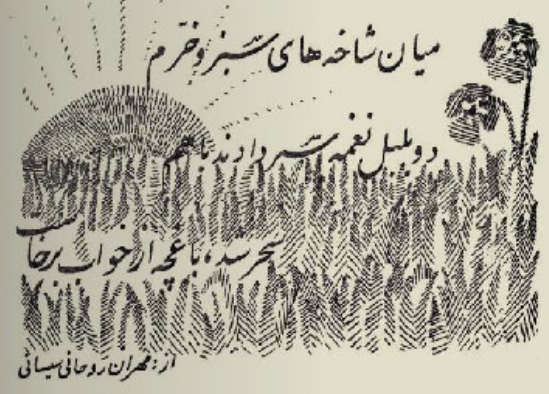 میان شاخه های سبز و خرم
دو بلبل نغمه سر دادند با هم
سحر شد، باغچه از خواب برخاست
از: مهران روحانی سیسانی